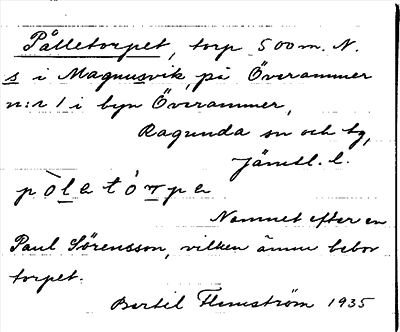 Påltorpet, torp 500 m. N.
s i Magnusvik, på Överammer
n:r 1 i byn Överammer,
Ragunda sn och tg,
Jämtl. l.
pòlatórpa
Namnet efter en
Paul Sörensson, vilken ännu bebor
torpet.
Bertil Flemström 1935